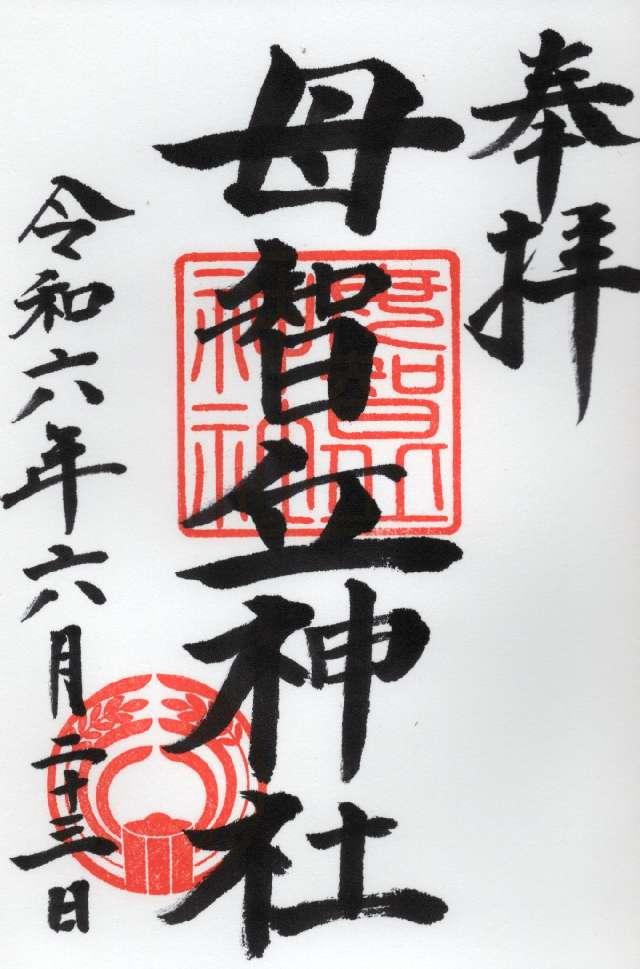 奉拝
母智丘神社
母智丘
神社
令和六年六月二十三日